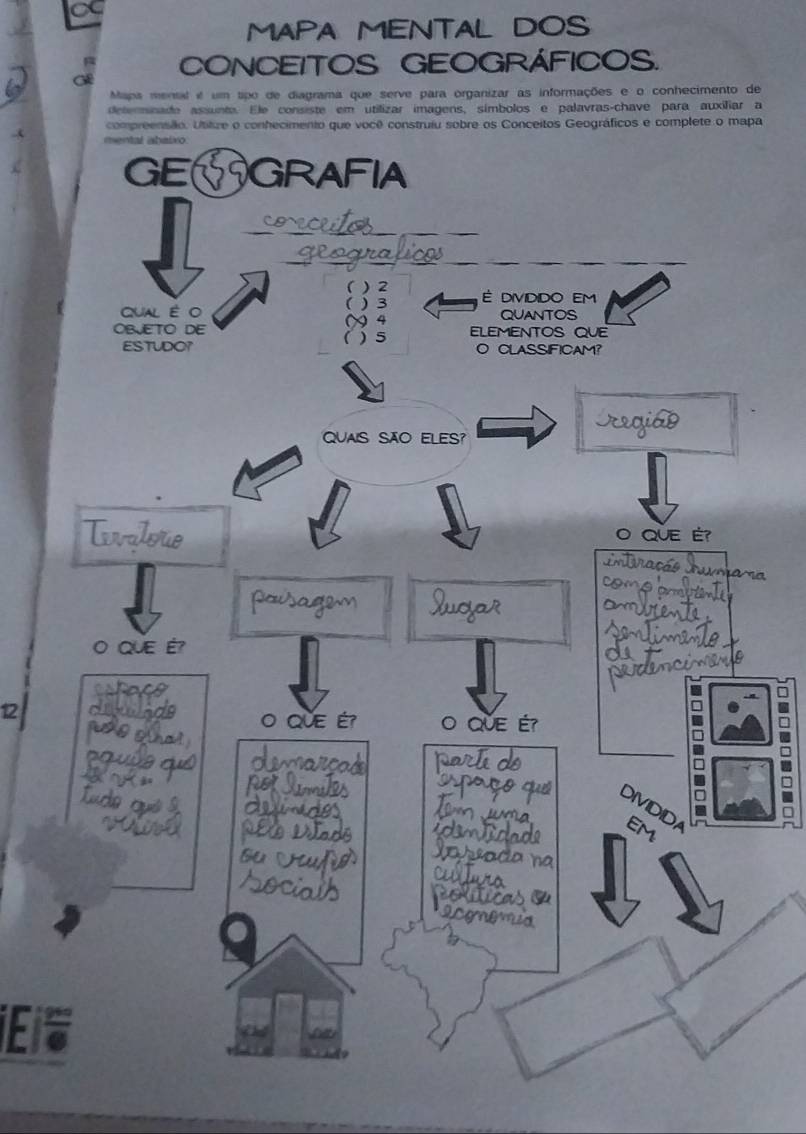 MAPA MENTAL DOS
CONCEITOS GEOGRÁFICOS.
Mapa mental é um tipo de diagrama que serve para organizar as informações e o conhecimento de
determinado assunto. Ele consiste em utilizar imagens, símbolos e palavras-chave para auxiliar a
compreensão. Utilize o conhecimento que você construiu sobre os Conceitos Geográficos e complete o mapa
mental abaixo:
GEOGRAFIA
conceitos
geograficos
QUAL É O
OBJETO DE
ESTUDO?
( ) 2
( ) 3
(x) 4
( ) 5
É DIVIDIDO EM
QUANTOS
ELEMENTOS QUE
O CLASSIFICAM?
QUAIS SÃO ELES?
região
O QUE É?
interação humana
como ambiente
ambiente
sentimento
de
pertencimento
DIVIDIDA
EM
Terratorio
O QUE É?
espaço
delulado
pelo olhar,
aquilo que
se ve
tudo que é
visivel
paisagem
O QUE É?
demarcado
por limites
definidos
pelo estado
ou crupos
sociais
lugar
O QUE É?
parte do
espaço que
tem uma
identidade
baseada na
cultura
politicas ou
economia
12